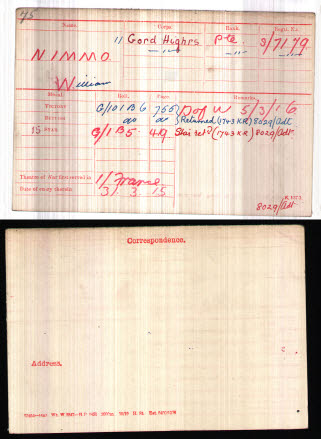 75
Name. Corps. Rank. Regtl. No.
NIMMO 11 Gord Highrs Pte 3/7179
William
Medal. Roll. Page. Remarks.
VICTORY G/101B6 755 D of W 5/3/16
BRITISH do do Returned (1743 KR) 8029/Adt
15 STAR G/1B5 49 Star retd (1743 KR) 8029/Adt
Theatre of War first served in 1/ France
Date of entry therein 3. 3. 15
K. 1372.
8029/Adt
Correspondence.
Address.